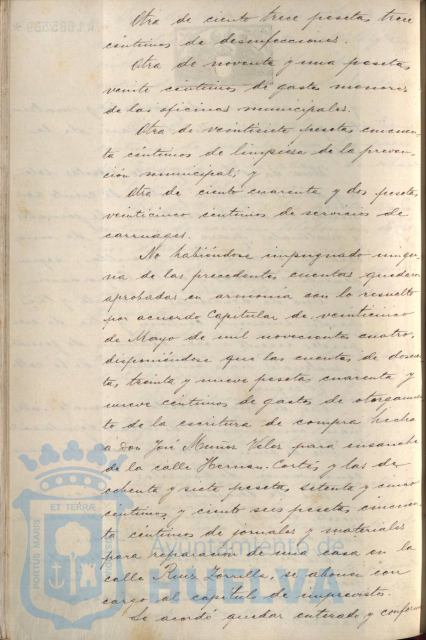 Otra de ciento trece pesetas trece
céntimos de desinfecciones.
Otra de noventa y una pesetas,
veinte céntimos de gastos menores
de las oficinas municipales.
Otra de veintisiete pesetas cincuen-
ta céntimos de limpieza de la preven-
ción municipal; y
Otra de ciento cuarenta y dos pesetas
veinticinco céntimos de servicios de
carruages.
No habiéndose impugnado ningu-
na de las precedentes cuentas quedaron
aprobadas en armonía con lo resuelto
por acuerdo Capitular de veinticinco
de Mayo de mil novecientos cuatro,
disponiéndose que las cuentas de doscien-
tas treinta y nueve pesetas cuarenta y
nueve céntimos de gastos de otorgamien-
to de la escritura de compra hecha
a Don José Muñoz Velez para ensanche
de la calle Hernan-Cortés y las de
ochenta y siete pesetas setenta y cinco
céntimos y ciento seis pesetas, cincuen-
ta céntimos de jornales y materiales
para reparación de una casa en la
calle Ruiz Zorrilla, se abonen con
cargo al capítulo de imprevistos.
Se acordó quedar enterado y conforme
PORTUS MARIS ET TERRÆ
Ayuntamiento de
HUELVA